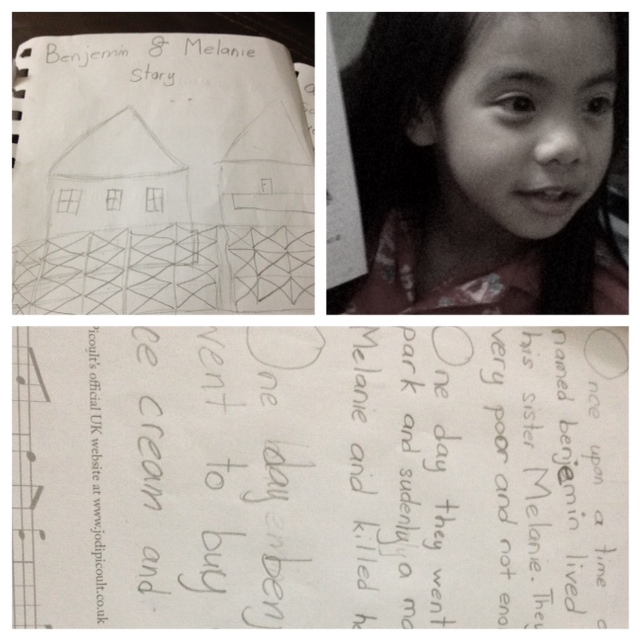 Benjemin & Melanie
Story
Once upon a time
named benjemin lived
his sister Melanie. They
very poor and not
One day they went
park and sudenly a
Melanie and killed
One day
went to buy
ice cream and
Picoult's official UK website at www.jodipicoult.co.uk